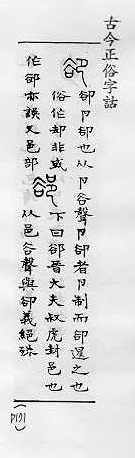 古今正俗字詁
卻 卩卻也从卩谷聲卩卻者卩制而卻還之也
俗作却非或
作郤亦誤又邑部
郤 下曰郤晉大夫叔虎封邑也
从邑谷聲與卻義絕殊
P171